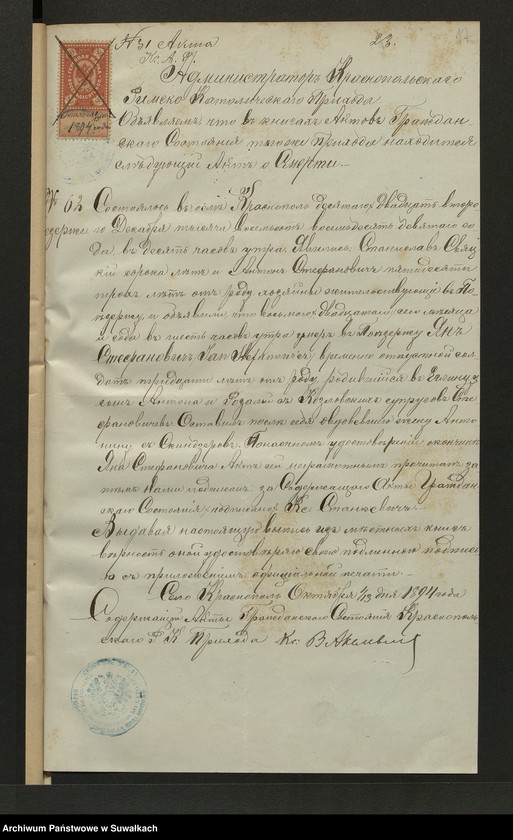 № 31 Акта 23. 17
Кс. А. Ф.
1894 года
Администраторъ Краснопольскаго
Римско Католическаго Прихода
Объявляемъ что въ книгахъ Актовъ Граждан
скаго Состоянія тогоже прихода находится
слѣдующій Актъ о Смерти.
№ 62 Состоялось въ селѣ Краснополь двадцать второ
го Декабря тысяча восемьсотъ восемьдесятъ девятаго го
да, въ десять часовъ утра. Явились: Станиславъ
сорока лѣтъ и Антонъ Стефановичъ пятидесяти
трехъ лѣтъ отъ роду, хозяйни жительствующіе въ По
пдержну, и объявили, что сего мѣсяца
и года въ шесть часовъ утра умеръ въ Попдержну Янъ
Стефановичъ /Jan Stefanowicz/ временно отпускной сол
датъ тридцати лѣтъ отъ роду, родившійся въ
сынъ Антона и Розаліи съ Козловскихъ супруговъ Сте
фановичевъ. Оставивъ послѣ себя овдовѣвшую жену Анто
нину съ Скиндзеровъ. По наочномъ удостовѣреніи о кончинѣ
Яна Стефановича Актъ сей неграмотнымъ прочитанъ за
тѣмъ Нами подписанъ, за Содержащаго Акты Граждан
скаго Состоянія /подписано/ Кс. Станкевичъ.
Выдавая настоящую выпись изъ мѣстныхъ книгъ
вѣрность оной удостовѣряю своею подписью
съ приложеніемъ оффиціальной печати.
Село Краснополь Октября 1/13 дня 1894 года
Содержащій Акты Гражданскаго Состоянія Краснополь
скаго Р. К. Прихода Кс. В.
Archiwum Państwowe w Suwałkach